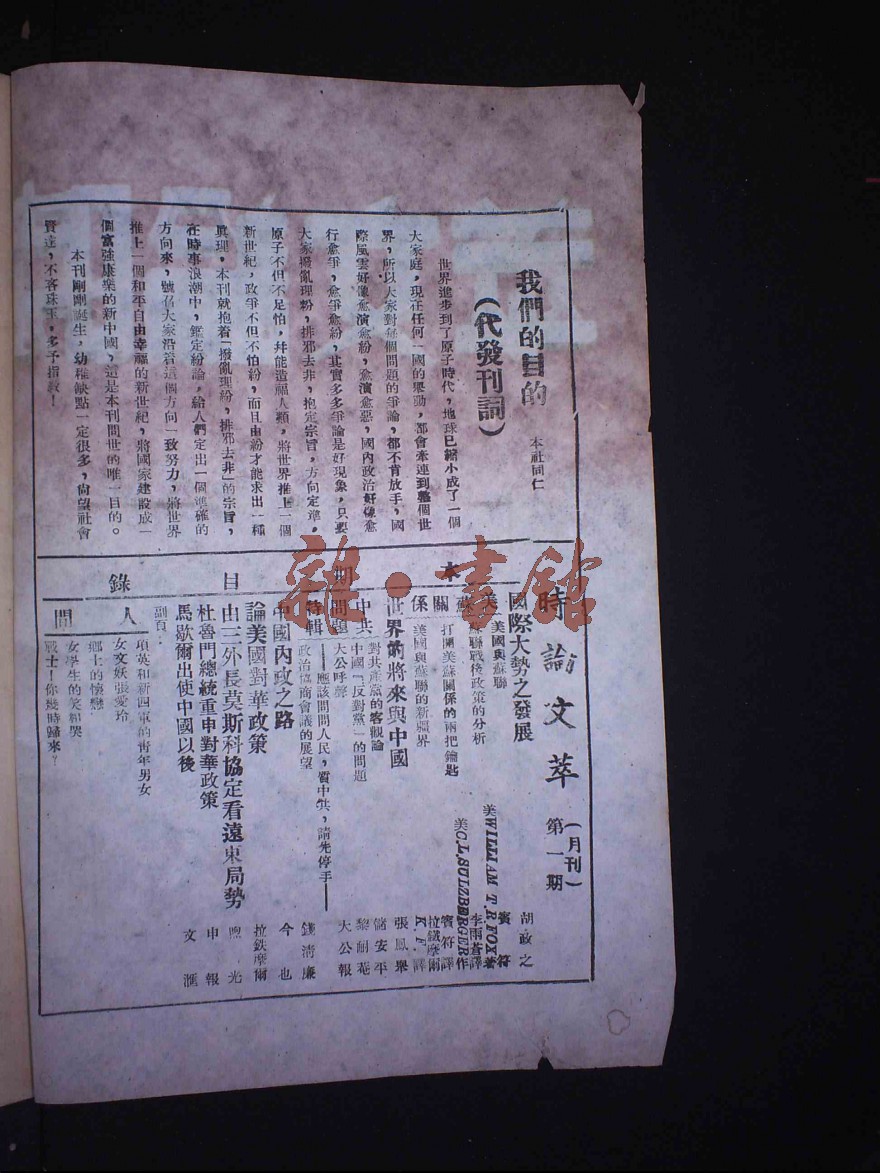 我們的目的
(代發刊詞)
本社同仁
世界進步到了原子時代,地球已縮小成了一個
大家庭,現在任何一國的舉動,都會牽連到整個世
界,所以大家對每個問題的爭論,都不肯放手,國
際風雲好像愈演愈紛,愈演愈惡,國內政治好像愈
行愈爭,愈爭愈紛,其實多多爭論是好現象,只要
大家撥亂理紛,排邪去非,抱定宗旨,方向定準,
原子不但不足怕,幷能造福人類,將世界推上一個
新世紀,政爭不但不怕紛,而且由紛才能求出一種
眞理,本刊就抱着「撥亂理紛,排邪去非」的宗旨,
在時事浪潮中,鑑定紛論,給人們定出一個準確的
方向來,號召大家沿着這個方向一致努力,將世界
推上一個和平自由幸福的新世紀,將國家建設成一
個富強康樂的新中國,這是本刊問世的唯一目的。
本刊剛剛誕生,幼稚缺點一定很多,尙望社會
賢達,不吝珠玉,多予指敎!
時論文萃
(月刊)
第一期
本期目錄
國際大勢之發展 胡政之
美蘇關係
美國與蘇聯 賓符
蘇聯戰後政策的分析 美WILLIAM T.R.FOX著 李雨蒼譯
打開美蘇關係的兩把鑰匙 美C.L.SULZBERGER作 賓符譯
美國與蘇聯的新疆界 拉鐵摩爾 K.F.譯
世界的將來與中國 張鳳舉
中共問題特輯
對共產黨的客觀論 儲安平
中國「反對黨」的問題 黎嗣菴
大公呼聲 大公報
——應該問問人民,質中共,請先停手——
政治協商會議的展望 錢清廉
中國內政之路 今也
論美國對華政策 拉鉄摩爾
由三外長莫斯科協定看遠東局勢 光
杜魯門總統重申對華政策 申報
馬歇爾出使中國以後 文滙
副頁:
人間
項英和新四軍的靑年男女
女文妖張愛玲
鄉土的懷戀
女學生的笑和哭
戰士!你幾時歸來?
雜·書館